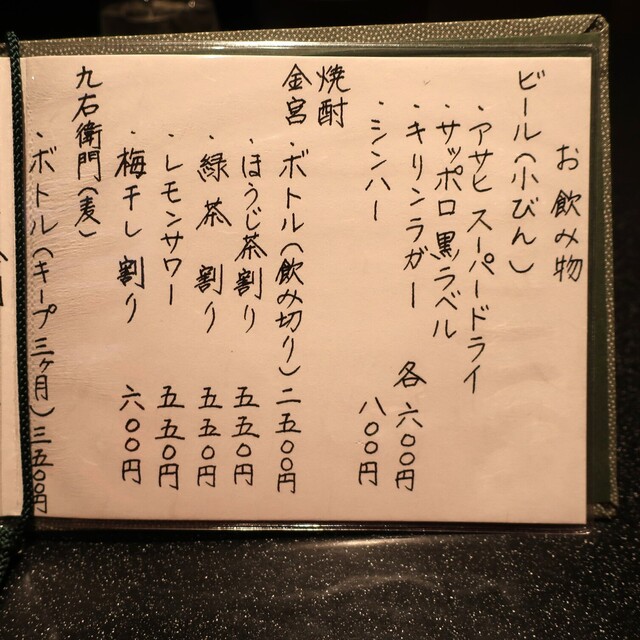 お飲み物
ビール(小びん)
・アサヒ スーパードライ
・サッポロ 黒ラベル
・キリンラガー 各六〇〇円
・シンハー 八〇〇円
焼酎
金宮・ボトル(飲み切り) 二五〇〇円
・ほうじ茶割り 五五〇円
・緑茶割り 五五〇円
・レモンサワー 五五〇円
・梅干し割り 六〇〇円
九右衛門(麦)
・ボトル(キープ三ヶ月) 三五〇〇円